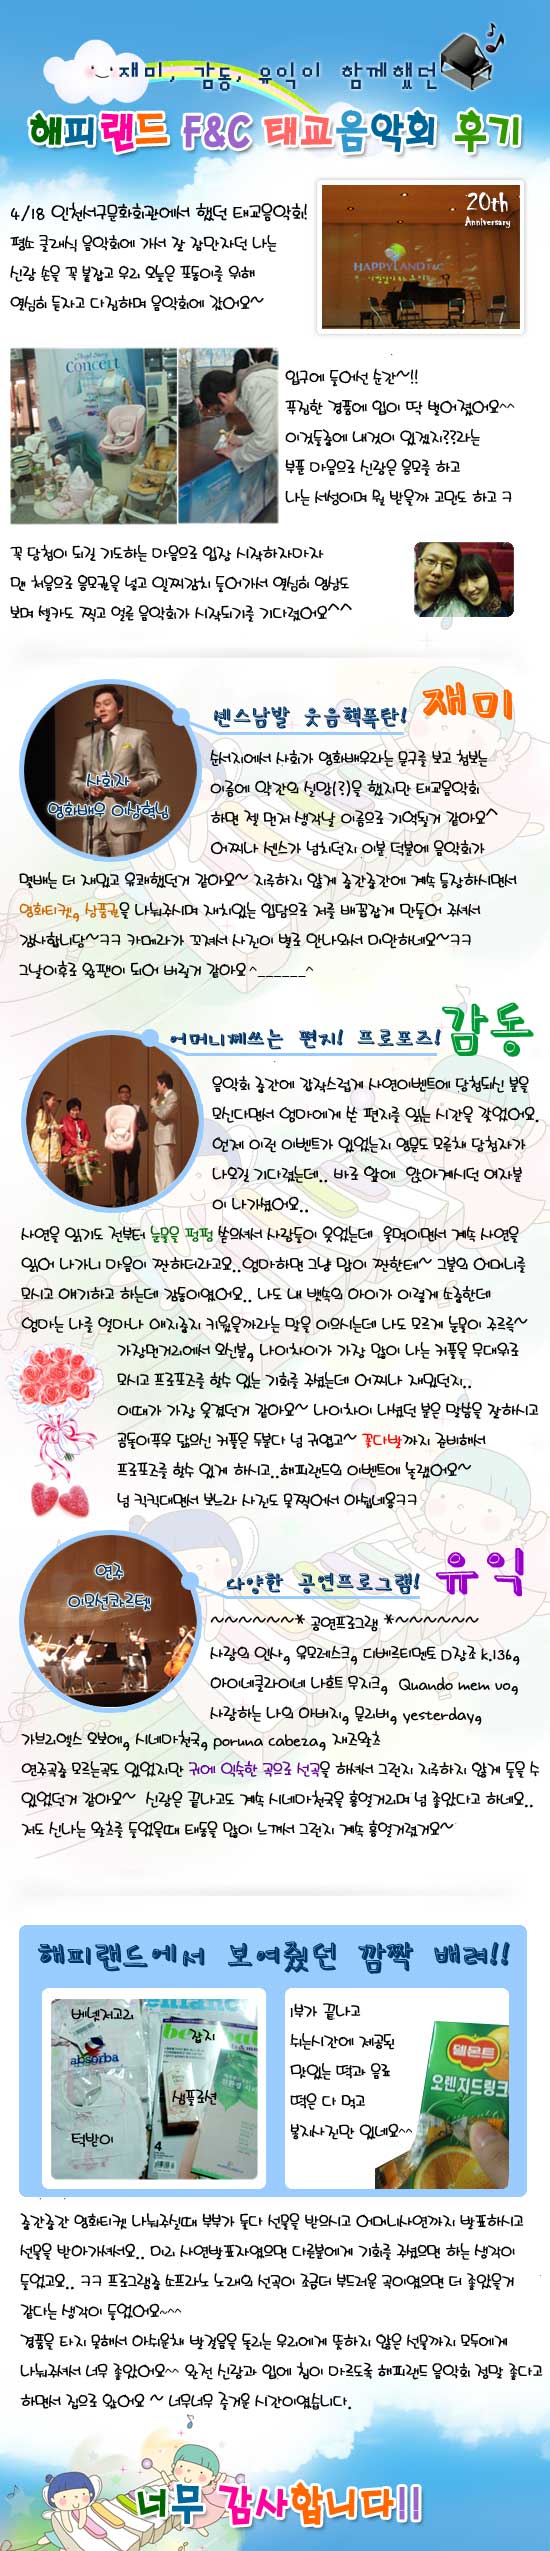 재미, 감동, 유익이 함께했던
해피랜드 F&C 태교음악회 후기
4/18 인천서구문화회관에서 했던 태교음악회!
평소 클래식 음악회에 가서 잘 잠만자던 나는
신랑 손을 꼭 붙잡고 우리 오늘은 포동이를 위해
열심히 듣자고 다짐하며 음악회에 갔어요~
20th
Anniversary
HAPPYLAND F&C
Concert
입구에 들어선 순간~!!
푸짐한 경품에 입이 떡 벌어졌어요^^
이것들중에 내것이 있겠지??라는
부푼 마음으로 신랑은 응모를 하고
나는 서성이며 뭘 받을까 고민도 하고 ㅋ
꼭 당첨이 되길 기도하는 마음으로 입장 시작하자마자
맨 처음으로 응모권을 넣고 일찌감치 들어가서 열심히 영상도
보며 셀카도 찍고 얼른 음악회가 시작되기를 기다렸어요^^
센스남발 웃음핵폭탄! 재미
사회자
영화배우 이상혁님
순서지에서 사회가 영화배우라는 문구를 보고 첨보는
이름에 약간의 실망(?)을 했지만 태교음악회
하면 젤 먼저 생각날 이름으로 기억될거 같아요^
어찌나 센스가 넘치던지 이분 덕분에 음악회가
몇배는 더 재밌고 유쾌했던거 같아요~ 지루하지 않게 중간중간에 계속 등장하시면서
영화티켓, 상품권을 나눠주시며 재치있는 입담으로 저를 배꼽잡게 만들어 주셔서
감사합니당~ㅋㅋ 카메라가 꼬져서 사진이 별로 안나와서 미안하네요~ㅋㅋ
그날이후로 왕팬이 되어 버릴거 같아요^______^
어머니께쓰는 편지! 프로포즈! 감동
음악회 중간에 갑작스럽게 사연이벤트에 당첨되신 분을
모신다면서 엄마에게 쓴 편지를 읽는 시간을 갖었어요.
언제 이런 이벤트가 있었는지 영문도 모른채 당첨자가
나오길 기다렸는데.. 바로 앞에 앉아계시던 여자분
이 나가셨어요..
사연을 읽기도 전부터 눈물을 펑펑 쏟으셔서 사람들이 웃었는데 울먹이면서 계속 사연을
읽어 나가니 마음이 짠하더라고요..엄마하면 그냥 맘이 짠한테~ 그분의 어머니를
모시고 얘기하고 하는데 감동이였어요.. 나도 내 뱃속의 아이가 이렇게 소중한데
엄마는 나를 얼마나 애지중지 키웠을까라는 말을 이으시는데 나도 모르게 눈물이 주르륵~
가장먼거리에서 오신분, 나이차이가 가장 많이 나는 커플을 무대위로
모시고 프로포즈를 할수 있는 기회를 주셨는데 어찌나 재밌던지..
이때가 가장 웃겼던거 같아요~ 나이차이 나셨던 분은 말씀을 잘하시고
곰돌이푸우 닮으신 커플은 두분다 넘 귀엽고~ 꽃다발까지 준비해서
프로포즈를 할수 있게 하시고..해피랜드의 이벤트에 놀랬어요~
넘 킥킥대면서 보느라 사진도 못찍어서 아쉽네용ㅋㅋ
다양한 공연프로그램! 유익
연주
이모션콰르텟
~~~~~~* 공연프로그램 *~~~~~~
사랑의 인사, 유모레스크, 디베르티멘토 D장조 k.136,
아이네클라이네 나흐트 무지크, Quando mem vo,
사랑하는 나의 아버지, 문리버, yesterday,
가브리엘스 오보에, 시네마천국, poruna cabeza, 재즈왈츠
연주곡중 모르는곡도 있었지만 귀에 익숙한 곡으로 선곡을 하셔서 그런지 지루하지 않게 들을 수
있었던거 같아요~ 신랑은 끝나고도 계속 시네마천국을 흥얼거리며 넘 좋았다고 하네요..
저도 신나는 왈츠를 들었을때 태동을 많이 느껴서 그런지 계속 흥얼거렸거요~
해피랜드에서 보여줬던 깜짝 배려!!
베넷저고리
잡지
absorba
샘플로션
턱받이
1부가 끝나고
쉬는시간에 제공된
맛있는 떡과 음료
떡은 다 먹고
봉지사진만 있네요^^
델몬트
오렌지드링크
중간중간 영화티켓 나눠주실때 부부가 둘다 선물을 받으시고 어머니사연까지 발표하시고
선물을 받아가셔서요.. 미리 사연발표자였으면 다른분에게 기회를 주셨으면 하는 생각이
들었고요.. ㅋㅋ 프로그램중 소프라노 노래의 선곡이 조금더 부드러운 곡이였으면 더 좋았을거
같다는 생각이 들었어요~^^
경품을 타지 못해서 아쉬운채 발걸음을 돌리는 우리에게 뜻하지 않은 선물까지 모두에게
나눠주셔서 너무 좋았어요^^ 완전 신랑과 입에 침이 마르도록 해피랜드 음악회 정말 좋다고
하면서 집으로 왔어요 ~ 너무너무 즐거운 시간이였습니다.
너무 감사합니다!!